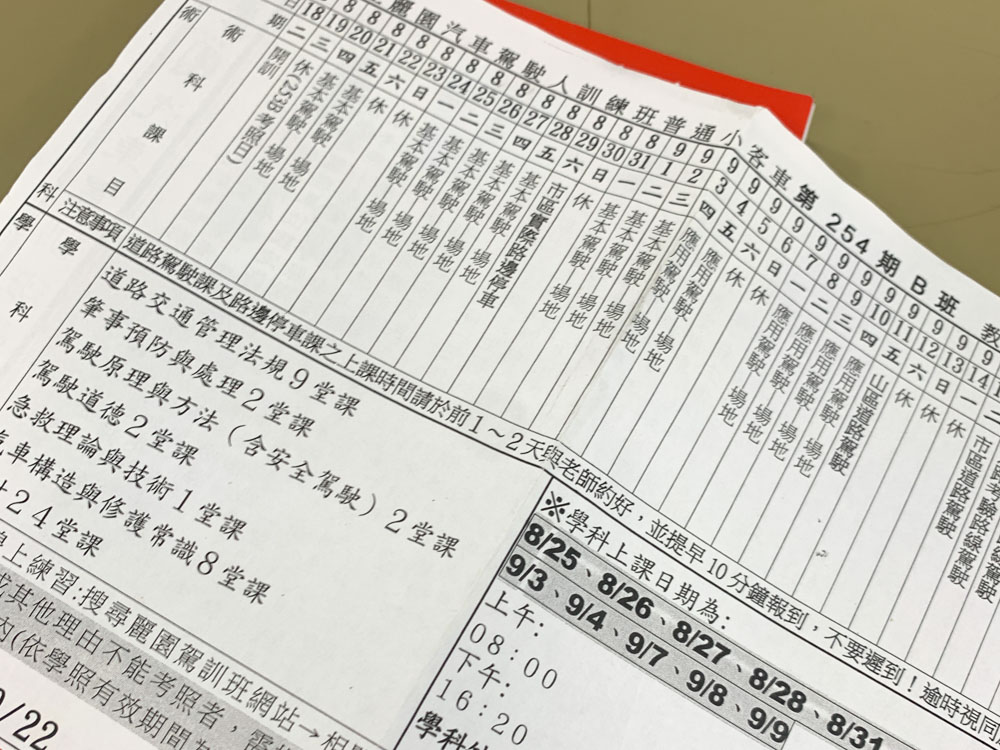 麗園汽車駕駛人訓練班普通小客車第 254 期 B 班 教
8 8 8 8 8 8 8 8 8 8 8 8 8 9 9 9 9 9 9 9 9 9 9 9 9 9 9
日 18 19 20 21 22 23 24 25 26 27 28 29 30 31 1 2 3 4 5 6 7 8 9 10 11 12 13 14
期 二 三 四 五 六 日 一 二 三 四 五 六 日 一 二 三 四 五 六 日 一 二 三 四 五 六 日 一 二
術科
術科課目
開訓
休(253B考照日)
基本駕駛 場地
基本駕駛 場地
休
休
基本駕駛 場地
基本駕駛 場地
基本駕駛 場地
基本駕駛 場地
實際路邊停車
休
基本駕駛 場地
基本駕駛 場地
基本駕駛 場地
基本駕駛 場地
應用駕駛 場地
應用駕駛 場地
休
休
應用駕駛 場地
應用駕駛 場地
應用駕駛 場地
應用駕駛 場地
山區道路駕駛
休
休
市區道路駕駛
注意事項 道路駕駛課及路邊停車課之上課時間請於前1~2天與老師約好,並提早10分鐘報到,不要遲到!逾時視同
學科
學科
道路交通管理法規9堂課
肇事預防與處理2堂課
駕駛原理與方法(含安全駕駛)2堂課
駕駛道德2堂課
急救理論與技術1堂課
汽車構造與修護常識8堂課
計24堂課
※學科上課日期為:
8/25、8/26、8/27、8/28、8/31
9/3、9/4、9/7、9/8、9/9
上午:
08:00
下午:
16:20
線上練習:搜尋麗園駕訓班網站→相
或其他理由不能考照者,需
內(依學照有效期間為
/22